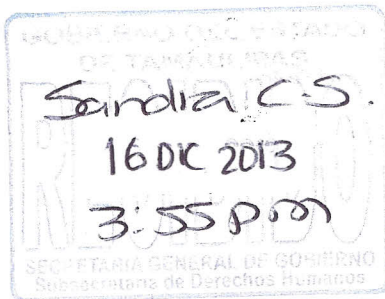 GOBIERNO DEL ESTADO
DE TAMAULIPAS
RECIBIDO
Sandra C.S.
16 DIC 2013
3:55 pm
SECRETARIA GENERAL DE GOBIERNO
Subsecretaria de Derechos Humanos